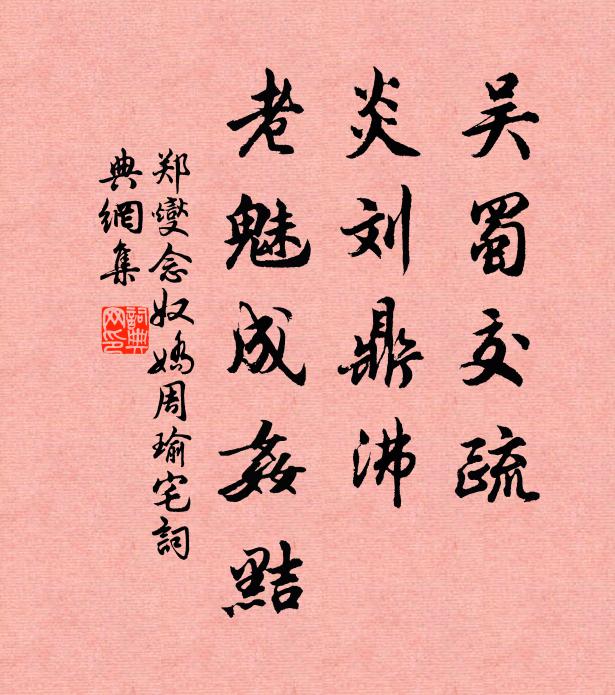 吴蜀交疏
炎刘鼎沸
老魅成姦黠
郑燮念奴娇周瑜宅词
典網集
詞典
网印